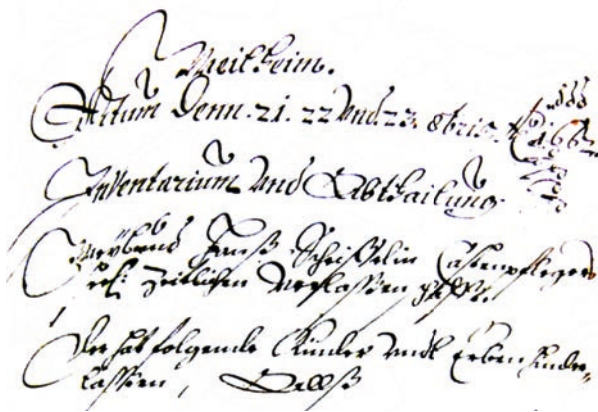 Weilheim.
Actum Denn. 21. 22 Vnd. 23. 8bris. Ao. 166
Inventarium Vnd Abthailung
Weylund Hannß Scheifelin Castenpflegers
Zeitlichen Verlaßen
Der hat folgende Kinder vndt Erben hinder-
laßen,